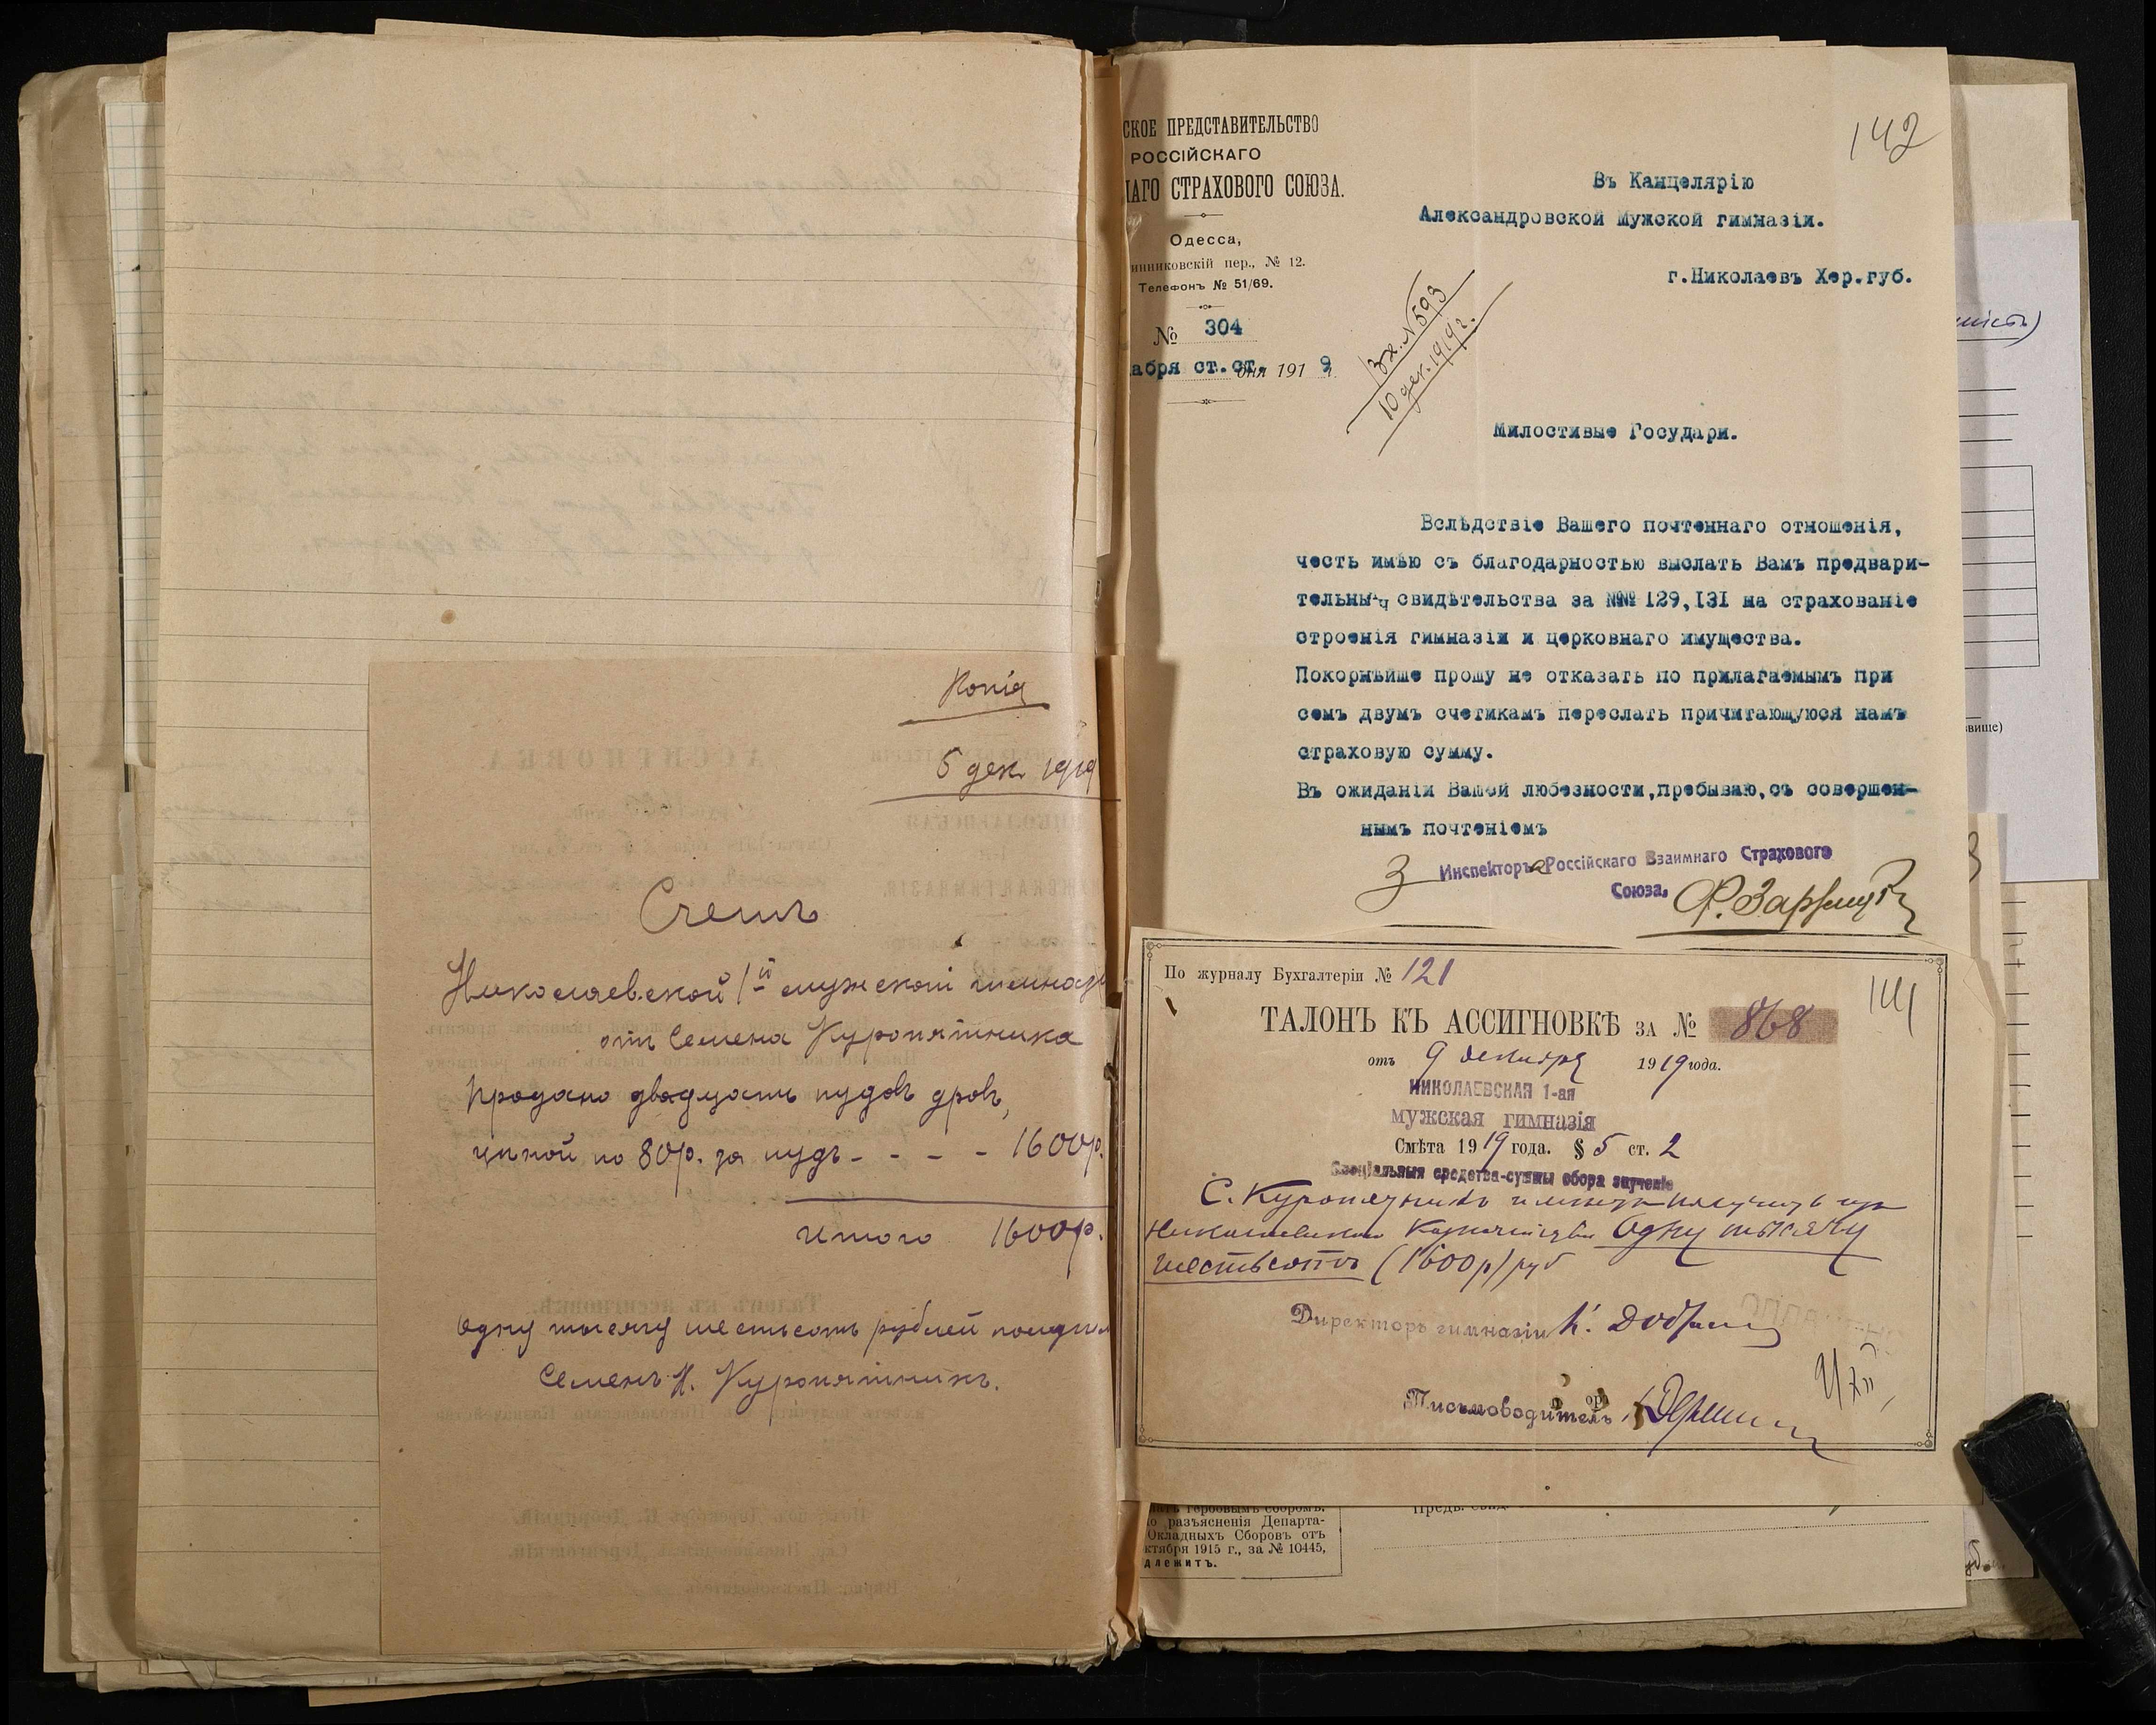 Копія
5 дек. 1919
Счетъ
Николаевской 1й мужской гимназ
отъ Семена Куропятника
Продано двадцать пудовъ дровъ,
цѣной по 80р. за пудъ - - - - 1600р.
Итого 1600р.
Одну тысячу шестьсотъ рублей получил
Семенъ Н. Куропятникъ.
СКОЕ ПРЕДСТАВИТЕЛЬСТВО
РОССІЙСКАГО
НАГО СТРАХОВОГО СОЮЗА.
Одесса,
инниковскій пер., № 12.
Телефонъ № 51/69.
№ 304
абря ст.ст. дня 1919 г.
142
Въ Канцелярію
Александровской Мужской гимназіи.
г.Николаевъ Хер.губ.
Вх. №593
10 дек. 1919 г.
Милостивые Государи.
Вслѣдствіе Вашего почтеннаго отношенія,
честь имѣю съ благодарностью выслать Вамъ предвари-
тельны свидѣтельства за №№ 129,131 на страхованіе
строенія гимназіи и церковнаго имущества.
Покорнѣйше прошу не отказать по прилагаемымъ при
семъ двумъ счетикамъ переслать причитающуюся намъ
страховую сумму.
Въ ожиданіи Вашей любезности,пребываю,съ совершен-
нымъ почтеніемъ
З Инспекторъа Россійскаго Взаимнаго Страхового
Союза.
По журналу Бухгалтеріи № 121
141
ТАЛОНЪ КЪ АССИГНОВКѢ ЗА № 868
отъ 9 декабря 1919 года.
НИКОЛАЕВСКАЯ 1-ая
мужская гимназія
Смѣта 1919 года. § 5 ст. 2
Спеціальныя средства-суммы сбора заученіе
С. Куропятникъ имѣетъ получить изъ
Николаевскаго Казначейства Одну тысячу
шестьсотъ (1600р) руб
Директоръ гимназіи К.
Письмоводитель
гербовымъ сборомъ.
разъясненія Департа-
Окладныхъ Сборовъ отъ
ктября 1915 г., за № 10445,
длежитъ.
Предъ.
звище)